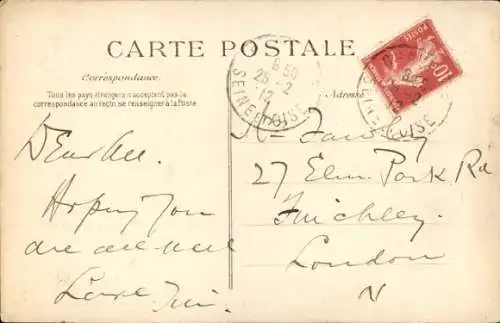 CARTE POSTALE
Correspondance.
Tous les pays étrangers n'acceptent pas la
correspondance au recto, se renseigner à la Poste
Adresse
8 50
26 - 2
12
SEINE OISE
POSTES
10
Dear All.
Hoping you
are all well
Love
27 Elm Park Rd
Finchley.
London
N